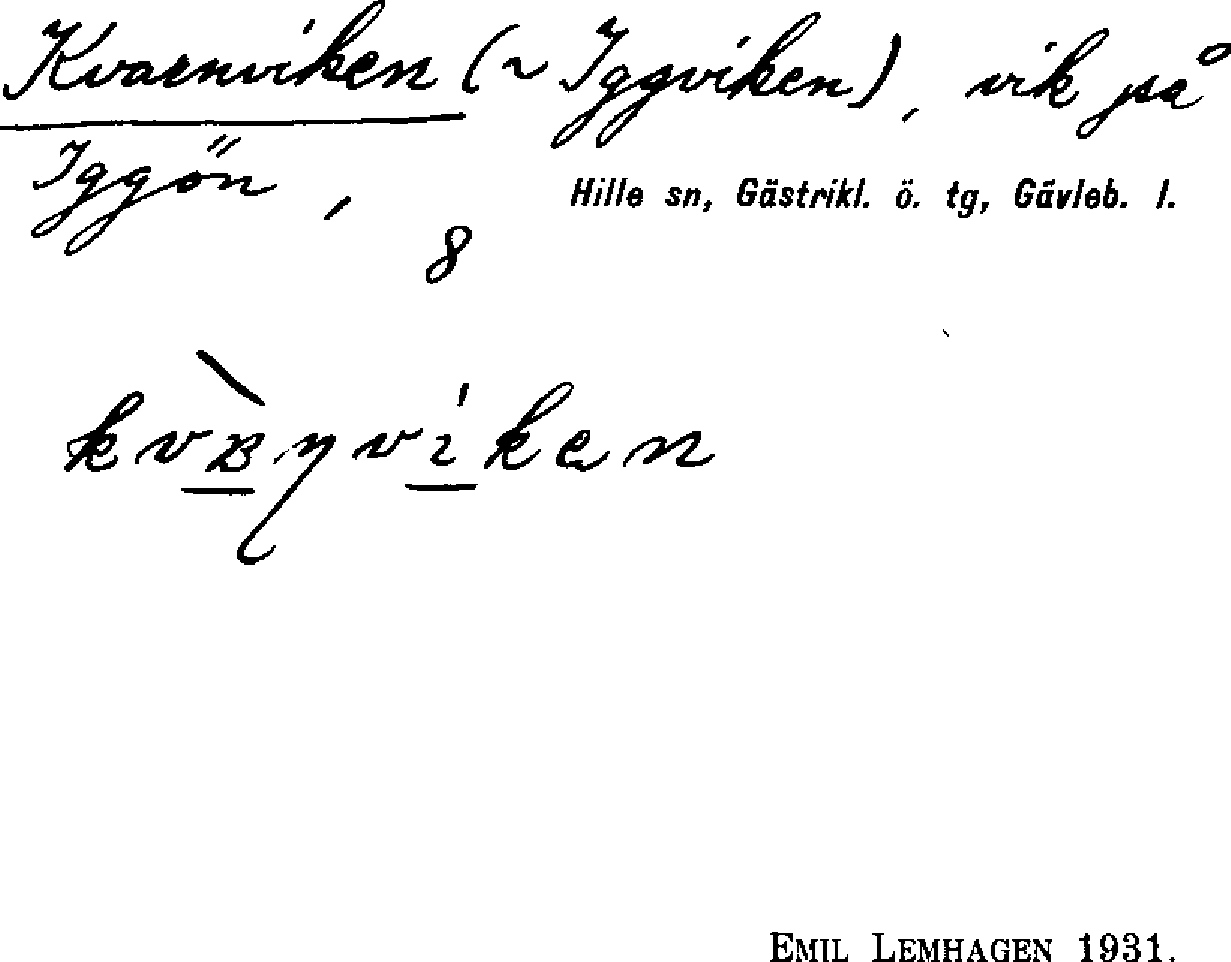 Kvarnviken (~ Iggviken), vik på
Iggön,
Hille sn, Gästrikl. ö. tg, Gävleb. l.
8
EMIL LEMHAGEN 1931.